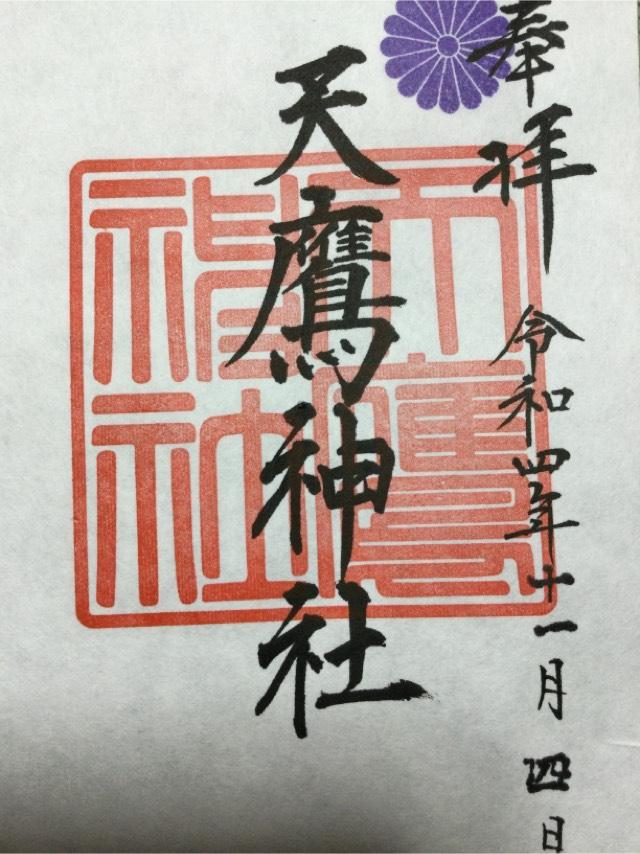 奉拝
令和四年十一月四日
天鷹神社
天鷹
神社